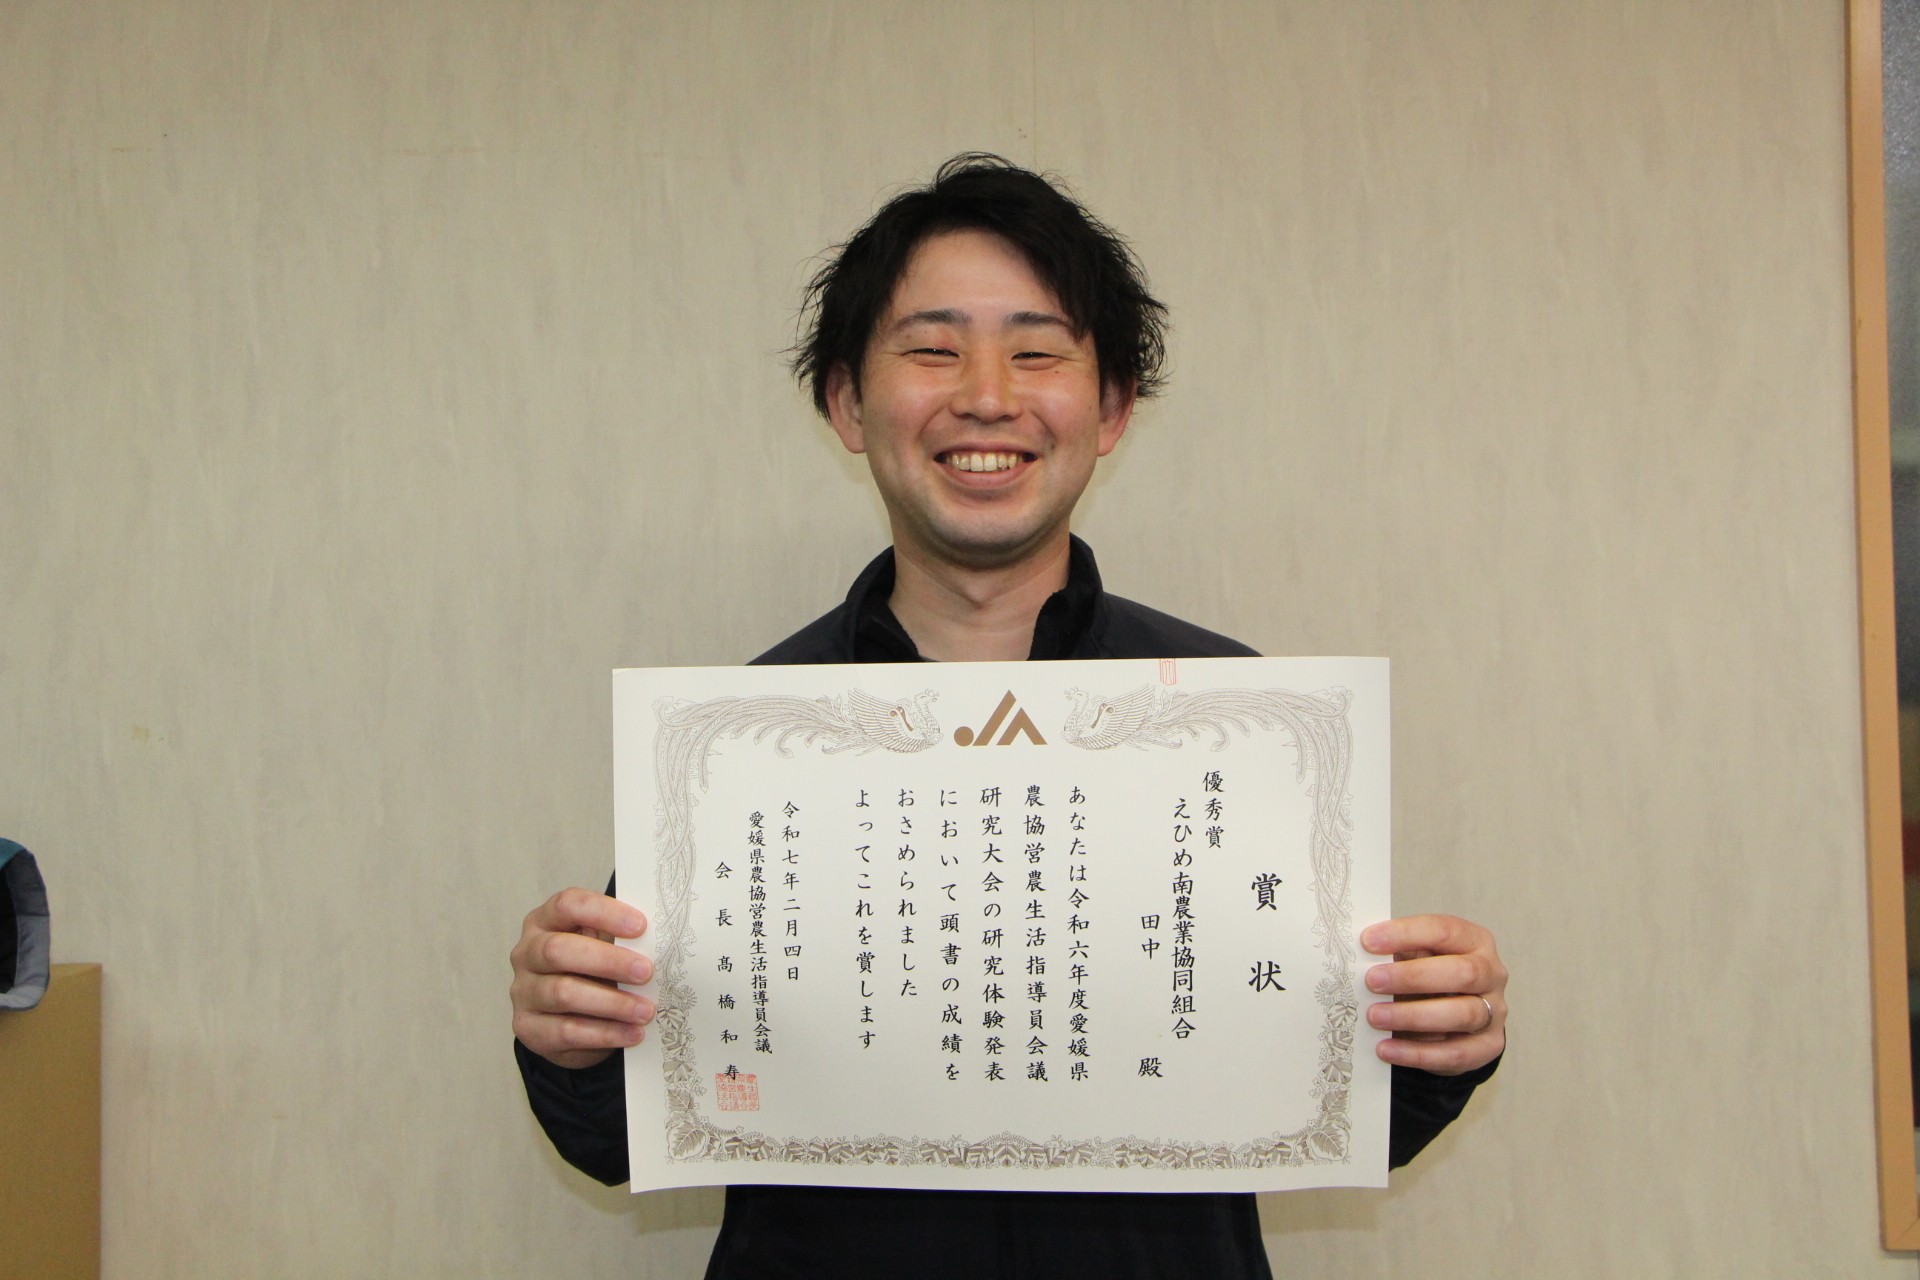 賞状
優秀賞
えひめ南農業協同組合
田中 殿
あなたは令和六年度愛媛県
農協営農生活指導員会議
研究大会の研究体験発表
において頭書の成績を
おさめられました
よってこれを賞します
令和七年二月四日
愛媛県農協営農生活指導員会議
会長 髙橋和寿
JA